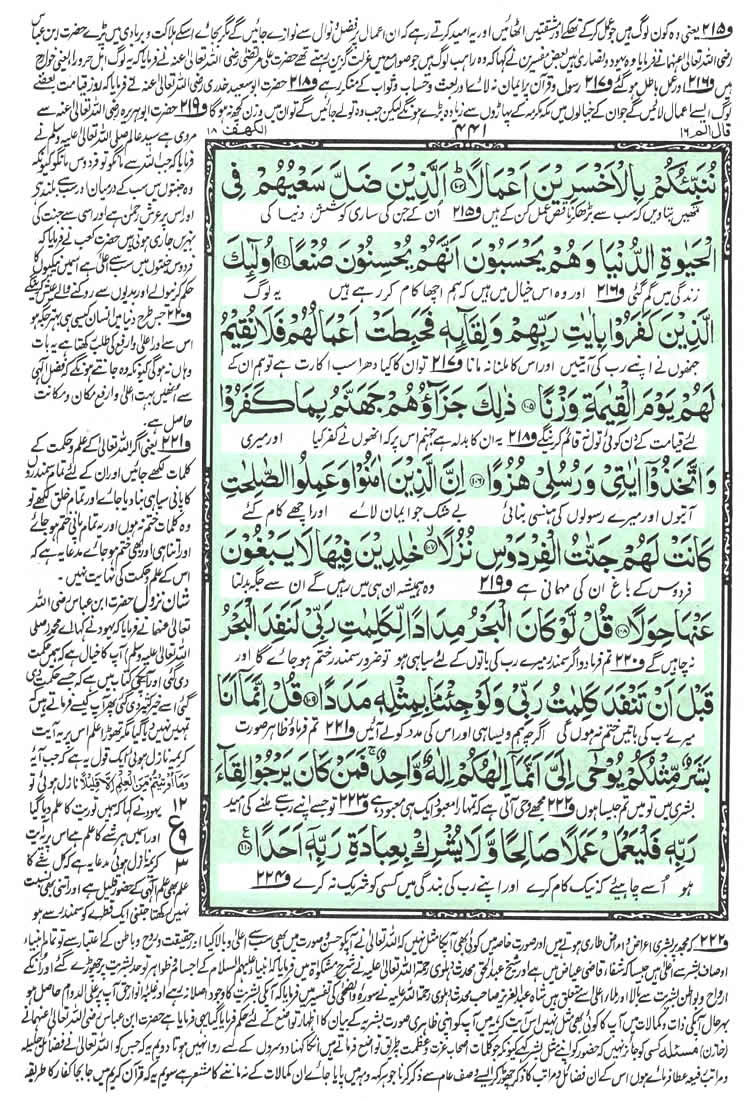 و۲۱۵ یعنی وہ کون لوگ ہیں جو عمل کرکے تھکے اور مشقتیں اٹھائیں اور یہ امید کرتے رہے کہ ان اعمال پر فضل و نوال سے نوازے جائیں گے مگر بجائے اسکے ہلاکت و بربادی میں پڑے حضرت ابن عباس
رضی اللہ تعالیٰ عنہما نے فرمایا وہ یہود و نصاریٰ ہیں بعض مفسرین نے کہا کہ وہ راہب لوگ ہیں جو صوامع میں عزلت گزین رہتے تھے حضرت علی مرتضیٰ رضی اللہ تعالیٰ عنہ نے فرمایا کہ یہ لوگ اہل حرورا یعنی خوارج
ہیں و۲۱۶ اور عمل باطل ہو گئے و۲۱۷ رسول و قرآن پر ایمان نہ لائے اور بعث و حساب و ثواب کے منکر رہے و۲۱۸ حضرت ابو سعید خدری رضی اللہ تعالیٰ عنہ نے فرمایا کہ روز قیامت بعضے
لوگ ایسے اعمال لائیں گے جو ان کے خیالوں میں مکہ مکرمہ کے پہاڑوں سے زیادہ بڑے ہوں گے لیکن جب وہ تولے جائیں گے تو ان میں وزن کچھ نہ ہوگا و۲۱۹ حضرت ابوہریرہ رضی اللہ تعالیٰ عنہ سے
قال الم ۱۶
۴۴۱
الکہف ۱۸
نُنَبِّئُكُمْ بِالْاَخْسَرِیْنَ اَعْمَالًاؕ۝۱۰۳ اَلَّذِیْنَ ضَلَّ سَعْیُهُمْ فِی
تمھیں بتا دیں کہ سب سے بڑھ کر ناقص عمل کن کے ہیں و۲۱۵ ان کے جن کی ساری کوشش دنیا کی
الْحَیٰوةِ الدُّنْیَا وَ هُمْ یَحْسَبُوْنَ اَنَّهُمْ یُحْسِنُوْنَ صُنْعًا۝۱۰۴ اُولٰٓىٕكَ
زندگی میں گم گئی و۲۱۶ اور وہ اس خیال میں ہیں کہ ہم اچھا کام کر رہے ہیں یہ لوگ
الَّذِیْنَ كَفَرُوْا بِاٰیٰتِ رَبِّهِمْ وَ لِقَآىٕهٖ فَحَبِطَتْ اَعْمَالُهُمْ فَلَا نُقِیْمُ
جنھوں نے اپنے رب کی آیتیں اور اس کا ملنا نہ مانا و۲۱۷ تو ان کا کیا دھرا سب اکارت ہے تو ہم ان کے
لَهُمْ یَوْمَ الْقِیٰمَةِ وَزْنًا۝۱۰۵ ذٰلِكَ جَزَآؤُهُمْ جَهَنَّمُ بِمَا كَفَرُوْا
لئے قیامت کے دن کوئی تول نہ قائم کریں گے و۲۱۸ یہ ان کا بدلہ ہے جہنم اس پر کہ انھوں نے کفر کیا اور میری
وَ اتَّخَذُوْۤا اٰیٰتِیْ وَ رُسُلِیْ هُزُوًا۝۱۰۶ اِنَّ الَّذِیْنَ اٰمَنُوْا وَ عَمِلُوا الصّٰلِحٰتِ
آیتوں اور میرے رسولوں کی ہنسی بنائی بے شک جو ایمان لائے اور اچھے کام کئے
كَانَتْ لَهُمْ جَنّٰتُ الْفِرْدَوْسِ نُزُلًاۙ۝۱۰۷ خٰلِدِیْنَ فِیْهَا لَا یَبْغُوْنَ
فردوس کے باغ ان کی مہمانی ہے و۲۱۹ وہ ہمیشہ ان ہی میں رہیں گے ان سے جگہ بدلنا
عَنْهَا حِوَلًا۝۱۰۸ قُلْ لَّوْ كَانَ الْبَحْرُ مِدَادًا لِّكَلِمٰتِ رَبِّیْ لَنَفِدَ الْبَحْرُ
نہ چاہیں گے و۲۲۰ تم فرما دو اگر سمندر میرے رب کی باتوں کے لئے سیاہی ہو تو ضرور سمندر ختم ہو جائے گا اور
قَبْلَ اَنْ تَنْفَدَ كَلِمٰتُ رَبِّیْ وَ لَوْ جِئْنَا بِمِثْلِهٖ مَدَدًا۝۱۰۹ قُلْ اِنَّمَاۤ اَنَا
میرے رب کی باتیں ختم نہ ہوں گی اگرچہ ہم ویسا ہی اور اس کی مدد کو لے آئیں و۲۲۱ تم فرماؤ ظاہر صورت
بَشَرٌ مِّثْلُكُمْ یُوْحٰۤى اِلَیَّ اَنَّمَاۤ اِلٰهُكُمْ اِلٰهٌ وَّاحِدٌۚ فَمَنْ كَانَ یَرْجُوْا لِقَآءَ
بشری میں تو میں تم جیسا ہوں و۲۲۲ مجھے وحی آتی ہے کہ تمہارا معبود ایک ہی معبود ہے و۲۲۳ تو جسے اپنے رب سے ملنے کی امید
رَبِّهٖ فَلْیَعْمَلْ عَمَلًا صَالِحًا وَّ لَا یُشْرِكْ بِعِبَادَةِ رَبِّهٖۤ اَحَدًا۠۝۱۱۰
ہو اُسے چاہیئے کہ نیک کام کرے اور اپنے رب کی بندگی میں کسی کو شریک نہ کرے و۲۲۴
مروی ہے سید عالم صلی اللہ تعالیٰ علیہ وسلم نے
فرمایا کہ جب اللہ سے مانگو تو فردوس مانگو کیونکہ
وہ جنتوں میں سب کے درمیان اور سب سے بلند ہے
اور اس پر عرش رحمٰن ہے اور اسی سے جنت کی
نہریں جاری ہوتی ہیں حضرت کعب نے فرمایا کہ
فردوس جنتوں میں سب سے اعلیٰ ہے اسمیں نیکیوں کا
حکم کرنیوالے اور بدیوں سے روکنے والے عیش کرینگے
و۲۲۰ جس طرح دنیا میں انسان کیسی ہی بہتر جگہ ہو
اس سے اور اعلیٰ و ارفع کی طلب رکھتا ہے یہ بات
وہاں نہ ہوگی کیونکہ وہ جانتے ہونگے کہ فضل الٰہی
سے انھیں بہت اعلیٰ و ارفع مکان و مکانت
حاصل ہے۔
و۲۲۱ یعنی اگر اللہ تعالیٰ کے علم و حکمت کے
کلمات لکھے جائیں اور ان کے لئے تمام سمندروں
کا پانی سیاہی بنا دیا جائے اور تمام خلق لکھے تو
وہ کلمات ختم نہ ہوں اور یہ تمام پانی ختم ہو جائے
اور اتنا ہی اور بھی ختم ہو جائے مدعا یہ ہے کہ
اس کے علم و حکمت کی نہایت نہیں۔
شان نزول حضرت ابن عباس رضی اللہ
تعالیٰ عنہما نے فرمایا کہ یہود نے کہا اے محمد (صلی
اللہ تعالیٰ علیہ وسلم) آپ کا خیال ہے کہ ہمیں حکمت
دی گئی اور آپکی کتاب میں ہے کہ جسے حکمت دی
گئی اُسے خیر کثیر دی گئی پھر آپ کیسے فرماتے ہیں کہ
تمہیں نہیں دیا گیا مگر تھوڑا علم اس پر یہ آیت
کریمہ نازل ہوئی ایک قول یہ ہے کہ جب آیۂ
وَمَا اُوْتِیْتُمْ مِّنَ الْعِلْمِ اِلَّا قَلِیْلًا نازل ہوئی تو
یہود نے کہا کہ ہمیں توریت کا علم دیا گیا
اور اسمیں ہر شے کا علم ہے اس پر یہ آیت
کریمہ نازل ہوئی مدعا یہ ہے کہ کل شے کا
علم بھی علم الٰہی کے حضور قلیل ہے اور اتنی بھی نسبت
نہیں رکھتا جتنی ایک قطرے کو سمندر سے ہو
۱۲
ع
۹
۳
و۲۲۲ کہ مجھ پر بشری اعراض و امراض طاری ہوتے ہیں اور صورت خاصہ میں کوئی بھی آپ کا مثل نہیں کہ اللہ تعالیٰ نے آپکو حسن و صورت میں بھی سب سے اعلیٰ و بالا کیا اور حقیقت و روح و باطن کے اعتبار سے تو تمام انبیاء
اوصاف بشر سے اعلیٰ ہیں جیسا کہ شفاء قاضی عیاض میں ہے اور شیخ عبدالحق محدث دہلوی رحمۃ اللہ تعالیٰ علیہ نے شرح مشکوٰۃ میں فرمایا کہ انبیاء علیہم السلام کے اجسام و ظواہر تو حد بشریت پر چھوڑے گئے اور انکے
ارواح و بواطن بشریت سے بالا اور ملاء اعلیٰ سے متعلق ہیں شاہ عبدالعزیز صاحب محدث دہلوی رحمۃ اللہ تعالیٰ علیہ نے سورہ والضحیٰ کی تفسیر میں فرمایا کہ آپ کی بشریت کا وجود اصلا نہ رہے اور غلبۂ انوار حق آپ پر علی الدوام حاصل ہو
بہرحال آپکی ذات و کمالات میں آپ کا کوئی بھی مثل نہیں اس آیت کریمہ میں آپ کو اپنی ظاہری صورت بشریہ کے بیان کا اظہار تواضع کے لئے حکم فرمایا گیا یہی فرمایا ہے حضرت ابن عباس رضی اللہ تعالیٰ عنہما نے
(خازن) مسئلہ کسی کو جائز نہیں کہ حضور کو اپنے مثل بشر کہے کیونکہ جو کلمات اصحاب عزت و عظمت بطریق تواضع فرماتے ہیں انکا کہنا دوسروں کے لئے روا نہیں ہوتا دویم یہ کہ جس کو اللہ تعالیٰ نے فضائل جلیلہ
و مراتب رفیعہ عطا فرمائے ہوں اس کے ان فضائل و مراتب کا ذکر چھوڑ کر ایسے وصف عام سے ذکر کرنا جو ہر کہ و مہ میں پایا جائے ان کمالات کے نہ ماننے کا مشعر ہے سویم یہ کہ قرآن کریم میں جا بجا کفار کا طریقہ